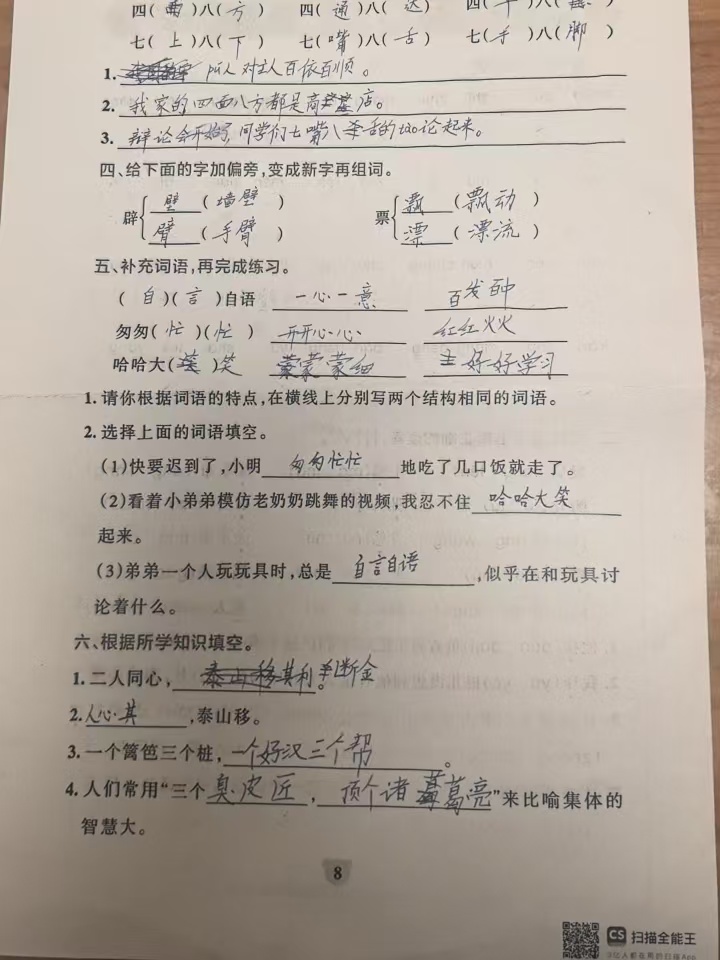 四(面)八(方) 四(通)八(达) 四(平)八(稳)
七(上)八(下) 七(嘴)八(舌) 七(手)八(脚)
1. 人对主人百依百顺。
2. 我家的四面八方都是高店。
3. 辩论会开始了,同学们七嘴八舌的tao论起来。
四、给下面的字加偏旁,变成新字再组词。
辟 壁(墙壁) 票 飘(飘动)
臂(手臂) 漂(漂流)
五、补充词语,再完成练习。
(自)(言)自语 一心一意 百发百中
匆匆(忙)(忙) 开开心心 红红火火
哈哈大( )笑 蒙蒙 细 好好学习
1.请你根据词语的特点,在横线上分别写两个结构相同的词语。
2.选择上面的词语填空。
(1)快要迟到了,小明匆匆忙忙地吃了几口饭就走了。
(2)看着小弟弟模仿老奶奶跳舞的视频,我忍不住哈哈大笑
起来。
(3)弟弟一个人玩玩具时,总是自言自语,似乎在和玩具讨
论着什么。
六、根据所学知识填空。
1.二人同心,其利断金。
2.人心其,泰山移。
3.一个篱笆三个桩,一个好汉三个帮。
4.人们常用“三个臭皮匠,顶个诸葛亮”来比喻集体的
智慧大。
8
CS 扫描全能王
3亿人都在用的扫描App